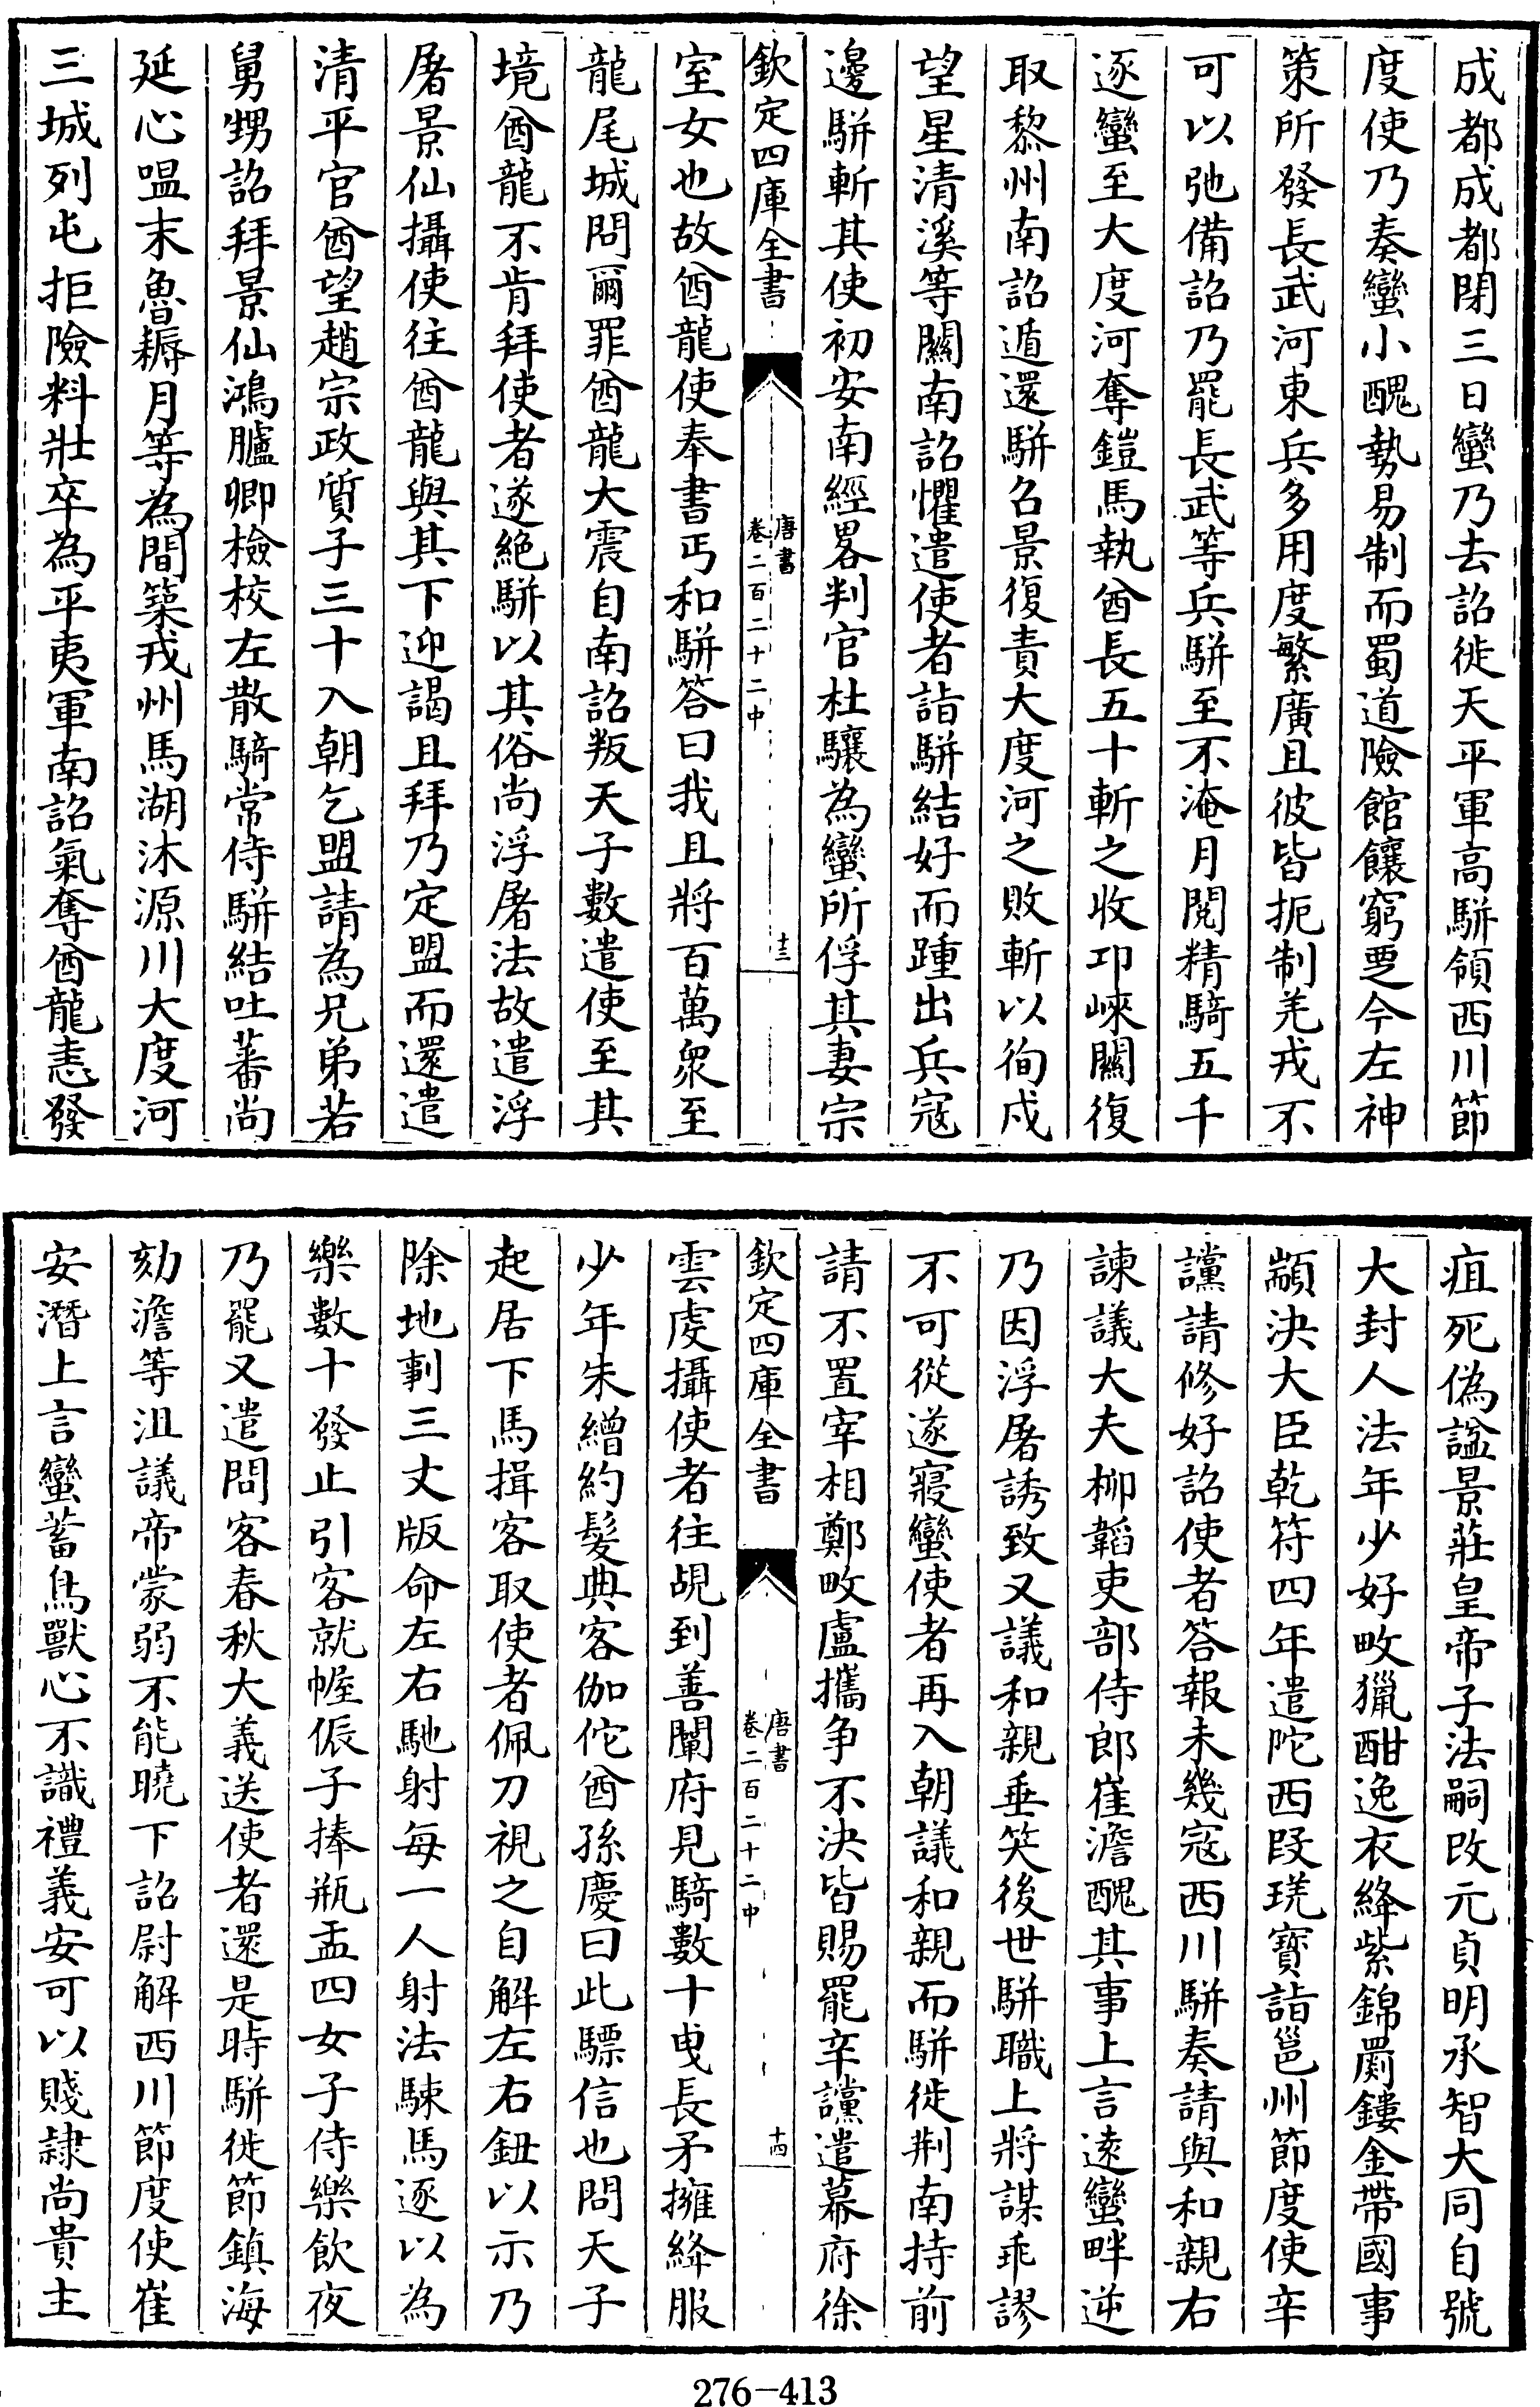 成都成都閉三日蠻乃去詔徙天平軍高駢領西川節
度使乃奏蠻小醜勢易制而蜀道險館饟窮覂今左神
策所發長武河東兵多用度繁廣且彼皆扼制羌戎不
可以弛備詔乃罷長武等兵駢至不淹月閱精騎五千
逐蠻至大度河奪鎧馬執酋長五十斬之收卭崍關復
取黎州南詔遁還駢召景復責大度河之敗斬以徇戍
望星清溪等關南詔懼遣使者詣駢結好而踵出兵寇
邊駢斬其使初安南經畧判官杜驤為蠻所俘其妻宗
欽定四庫全書
唐書
卷二百二十二中
十三
室女也故酋龍使奉書丐和駢答曰我且將百萬衆至
龍尾城問爾罪酋龍大震自南詔叛天子數遣使至其
境酋龍不肯拜使者遂絕駢以其俗尚浮屠法故遣浮
屠景仙攝使往酋龍與其下迎謁且拜乃定盟而還遣
清平官酋望趙宗政質子三十入朝乞盟請為兄弟若
舅甥詔拜景仙鴻臚卿檢校左散騎常侍駢結吐蕃尚
延心嗢末魯耨月等為間築戎州馬湖沐源川大度河
三城列屯拒險料壯卒為平夷軍南詔氣奪酋龍恚發
疽死偽諡景莊皇帝子法嗣改元貞明承智大同自號
大封人法年少好畋獵酣逸衣絳紫錦罽鏤金帶國事
顓決大臣乾符四年遣陀西段㻽寶詣邕州節度使辛
讜請修好詔使者答報未幾寇西川駢奏請與和親右
諫議大夫柳韜吏部侍郎崔澹醜其事上言遠蠻畔逆
乃因浮屠誘致又議和親垂笑後世駢職上將謀乖謬
不可從遂寢蠻使者再入朝議和親而駢徙荆南持前
請不置宰相鄭畋盧攜爭不決皆賜罷辛讜遣幕府徐
欽定四庫全書
唐書
卷二百二十二中
十四
雲虔攝使者往覘到善闡府見騎數十曳長矛擁絳服
少年朱繒約髮典客伽佗酋孫慶曰此驃信也問天子
起居下馬揖客取使者佩刀視之自解左右鈕以示乃
除地剚三丈版命左右馳射每一人射法駷馬逐以為
樂數十發止引客就幄侲子捧瓶盂四女子侍樂飲夜
乃罷又遣問客春秋大義送使者還是時駢徙節鎮海
劾澹等沮議帝蒙弱不能曉下詔尉解西川節度使崔
安潛上言蠻蓄鳥獸心不識禮義安可以賤隸尚貴主
276-413